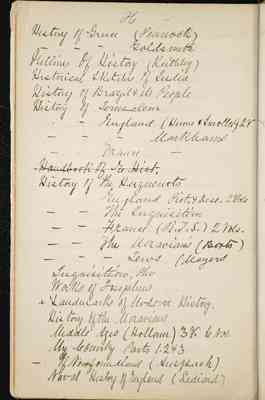 H
History of Greece (Peacock)
" - " - " Goldsmith
Outlines Of History (Keithley)
Historical Sketches of
History of Brazil & its People
History of
" - " England (Hume & Smollett)
" - " Markhams
" - " France -
Handbook Of Hist.
History of the Huguenots
" - " England Pict. 2 Vols
- - The Inquisition
- - France (R.T.S.) 2 Vols.
- - The Moravians (Bost)
- - - Jews (Mayers
Inquisition, The
Works of Josephus
+ Landmarks of Modern History.
History of the Moravians
Middle Ages (Hallam) 3 V
My Country Parts 1.2 & 3
- Of Newfoundland (Anspach)
Naval History of England (Lediard)